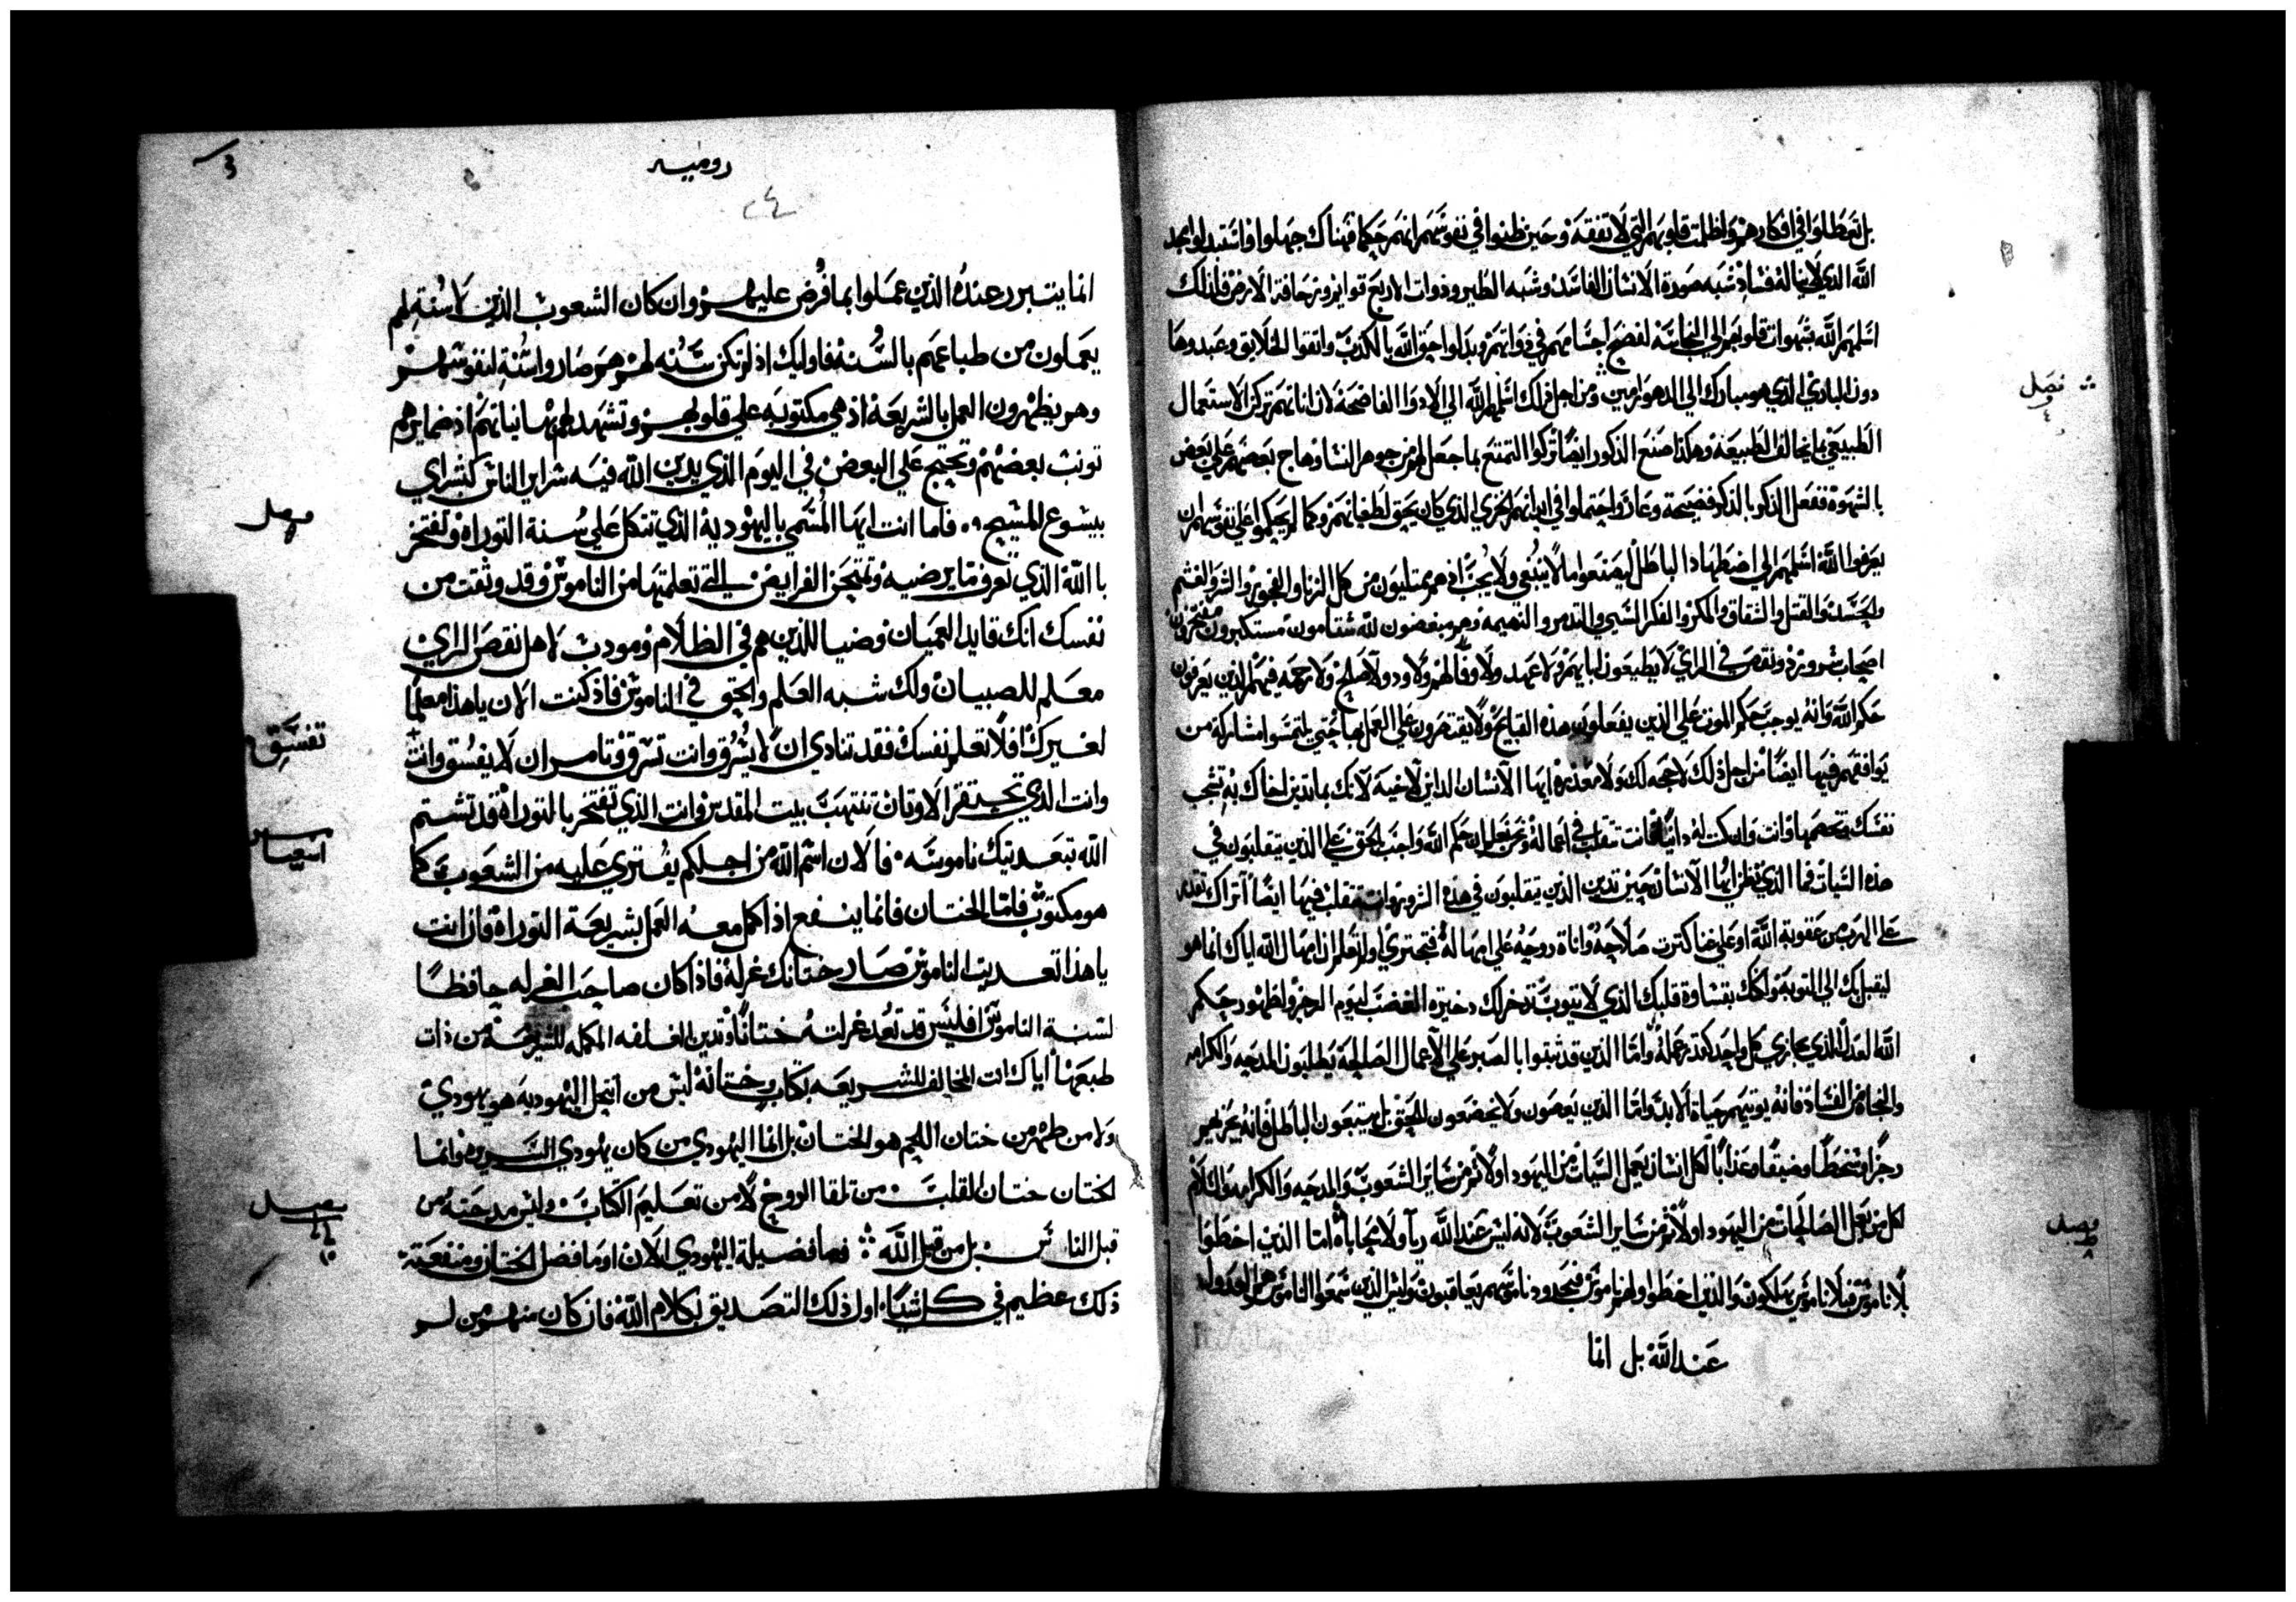 بل تعطلوا في افكارهم واظلمت قلوبهم التي لا تفقه وحين ظنوا في نفوسهم انهم حكما فهناك جهلوا واستبدلوا مجد
الله الذي لا يناله فساد بشبه صورة الانسان الفاسد وشبه الطير وذوات الاربع قوايم وزحافة الارض فلذلك
اسلمهم الله بشهوات قلوبهم الي النجاسة لفضيح اجسامهم في ذواتهم وبدلوا حق الله بالكذب واتقوا الخلايق وعبدوها
دون الباري الذي هو مبارك الي الدهور امين ومن اجل ذلك اسلمهم الله الي الادوا الفاضحة لان اناثهم تركن الاستعمال
الطبيعي بما يخالف الطبيعة وهكذا صنع الذكور ايضا تركوا التمتع بما جعل لهم من جوهر النسا وهاج بعضهم علي بعض
بالشهوة ففعل الذكر بالذكر فضيحة وعار واحتملوا في ابدانهم الجزي الذي كان يحق لطغيانهم وكما لم يحكموا علي نفوسهم ان
يعرفوا الله اسلمهم الي اضطهاد الباطل ليصنعوا ما لا ينبغي ولا يجب اذ هم ممتليون من كل الزنا والفجور والشر والغشم
والحسد والقتل والشقاق والمكر والفكر السيي والتذمر والنميمه وهم مبغضون لله شتامون مستكبرون مفتخرون
اصحاب شرور ونقص في الراي لا يطيعون ابايهم ولا عهد ولا وفا لهم ولا ود ولا صلح ولا رحمه فيهم الذين يعرفون
حكم الله وانه يوجب حكم الموت علي الذين يفعلون هذه القبايح ولا يقتصرون علي العمل بها حتي يلتمسوا مشاركة من
يوافقهم فيها ايضا من اجل ذلك لا حجه لك ولا معذره ايها الانسان الداين لاخيه لانك بما تدين اخاك به تشجب
نفسك وتخصمها وانت وان كنت له دانيا فانت تتقلب في اعماله ونحن نعلم ان حكم الله واجب بالحق علي الذين يتقلبون في
هذه السيات فما الذي تظن ايها الانسان حين تدين الذين يتقلبون في هذه الشرور وانت تتقلب فيها ايضا اتراك تقدر
علي الهرب من عقوبة الله او علي غنا كثرت صلاحه واناة روحه علي امهاله فتجتري اولم تعلم ان امهال الله اياك انما هو
ليقبل بك الي التوبة ولكنك بقساوة قلبك الذي لا يتوب تدخر لك دخيرة الغضب ليوم الرجز ولظهور حكم
الله العدل الذي يجازي كل واحد كقدر عمله واما الذين قد ثبتوا بالصبر علي الاعمال الصالحة يطلبون المدحه والكرامه
والنجاة من الفساد فانه يوتيهم حياة الابد واما الذين يعصون ولا يخضعون للحق بل يتبعون الباطل فانه يجزيهم
رجزا وسخطا وضيقا وعذابا لكل انسان يعمل السيات من اليهود اولا ثم من ساير الشعوب والمدحه والكرامه والسلام
لكل من يعمل الصالحات من اليهود اولا ثم من ساير الشعوب لانه ليس عند الله ريا ولا محاباة اما الذين اخطوا
بلا ناموس فبلا ناموس يهلكون والذين اخطوا ولهم ناموس فبحدود ناموسهم يعاقبون وليس الذين سمعوا الناموس هم العدول
عند الله بل انما
فصل
٤
فصل
٨
روميه
انما يتبرر عنده الذين عملوا بما فرض عليهم وان كان الشعوب الذين لا سنة لهم
يعملون من طباعهم بالسنة فاوليك اذ لم تكن سنه لهم هم صاروا سنة لنفوسهم
وهم يظهرون العمل بالشريعة اذ هي مكتوبه علي قلوبهم وتشهد لهم بها نياتهم اذ ضمايرهم
تونب بعضهم وتحتج علي البعض في اليوم الذي يدين الله فيه سراير الناس كبشراي
بيشوع المسيح فاما انت ايها المسمي باليهودية الذي تتكل علي سنة التوراه وتفتخر
بالله الذي تعرف ما يرضيه وتمتحن الفرايض التي تعلمتها من الناموس وقد وثقت من
نفسك انك قايد العميان وضيا للذين هم في الظلام ومودب لاهل نقص الراي
معلم للصبيان ولك شبه العلم والحق في الناموس فاذ كنت الان ياهذا معلما
لغيرك افلا تعلم نفسك فقد تنادي ان لا يسرق وانت تسرق وتامر ان لا يفسق وانت
وانت الذي تحتقر الاوثان تنتهب بيت المقدس وانت الذي تفتخر بالتوراة قد تشتم
الله بتعديك ناموسه فالان اسم الله من اجلكم يفتري عليه من الشعوب كما
هو مكتوب فاما الختان فانما ينفع اذا كمل معه العمل بشريعة التوراة فان انت
ياهذا تعديت الناموس صار ختانك غرلة فاذا كان صاحب الغرله حافظا
لسنة الناموس افليس قد تعد غرلته ختانا وتدين الغلفه المكمله للشريعة من ذات
طبعها اياك انت المخالف للشريعه بكتاب وختانه ليس من انتحل اليهوديه هو يهودي
ولا من ظهر من ختان اللحم هو الختان بل انما اليهودي من كان يهودي السريره وانما
الختان ختان القلب من تلقا الروح لا من تعليم الكتاب وليس مدحته من
قبل الناس بل من قبل الله فما فضيلة اليهودي الان او ما فضل الختان ومنفعته
ذلك عظيم في كل شيا اول ذلك التصديق بكلام الله فان كان منهم من لم
فصل
تفسق
اشعيا
فصل
١٠